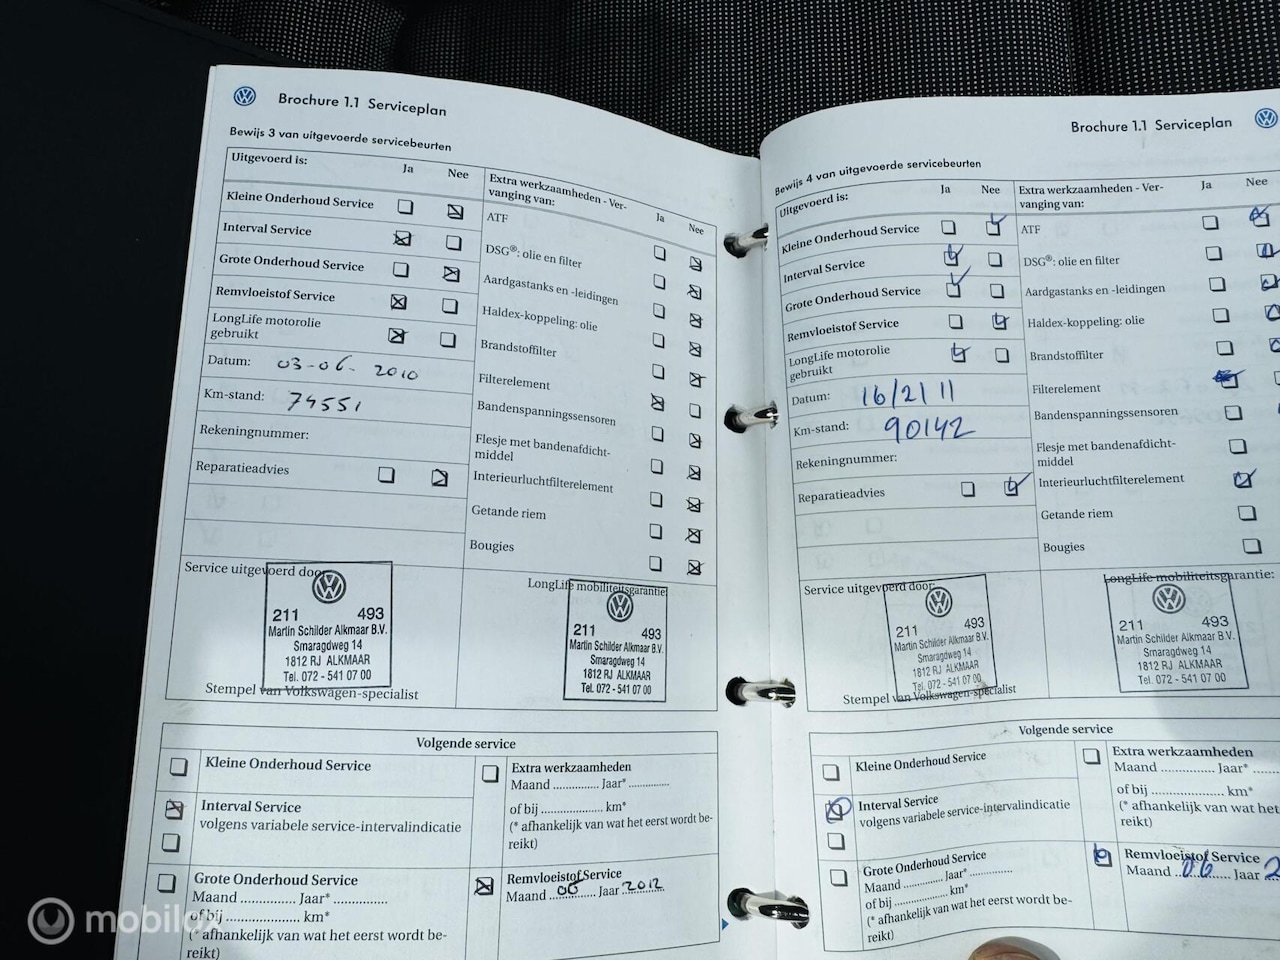 Brochure 1.1 Serviceplan
Bewijs 3 van uitgevoerde servicebeurten
Uitgevoerd is:
Ja Nee
Extra werkzaamheden - Ver-
vanging van:
Ja Nee
Kleine Onderhoud Service
Interval Service
Grote Onderhoud Service
Remvloeistof Service
LongLife motorolie
gebruikt
Datum: 03-06-2010
Km-stand: 74551
Rekeningnummer:
Reparatieadvies
ATF
DSG®: olie en filter
Aardgastanks en -leidingen
Haldex-koppeling: olie
Brandstoffilter
Filterelement
Bandenspanningssensoren
Flesje met bandenafdicht-
middel
Interieurluchtfilterelement
Getande riem
Bougies
Service uitgevoerd door:
211 493
Martin Schilder Alkmaar B.V.
Smaragdweg 14
1812 RJ ALKMAAR
Tel. 072 - 541 07 00
Stempel van Volkswagen-specialist
LongLife mobiliteitsgarantie:
211 493
Martin Schilder Alkmaar B.V.
Smaragdweg 14
1812 RJ ALKMAAR
Tel. 072 - 541 07 00
Volgende service
Kleine Onderhoud Service
Interval Service
volgens variabele service-intervalindicatie
Grote Onderhoud Service
Maand .............. Jaar* ..............
of bij .................... km*
(* afhankelijk van wat het eerst wordt be-
reikt)
Extra werkzaamheden
Maand .............. Jaar* ..............
of bij .................... km*
(* afhankelijk van wat het eerst wordt be-
reikt)
Remvloeistof Service
Maand 06 Jaar 2012
Brochure 1.1 Serviceplan
Bewijs 4 van uitgevoerde servicebeurten
Uitgevoerd is:
Ja Nee
Extra werkzaamheden - Ver-
vanging van:
Ja Nee
Kleine Onderhoud Service
Interval Service
Grote Onderhoud Service
Remvloeistof Service
LongLife motorolie
gebruikt
Datum: 16/2/11
Km-stand: 90142
Rekeningnummer:
Reparatieadvies
ATF
DSG®: olie en filter
Aardgastanks en -leidingen
Haldex-koppeling: olie
Brandstoffilter
Filterelement
Bandenspanningssensoren
Flesje met bandenafdicht-
middel
Interieurluchtfilterelement
Getande riem
Bougies
Service uitgevoerd door:
211 493
Martin Schilder Alkmaar B.V.
Smaragdweg 14
1812 RJ ALKMAAR
Tel. 072 - 541 07 00
Stempel van Volkswagen-specialist
LongLife mobiliteitsgarantie:
211 493
Martin Schilder Alkmaar B.V.
Smaragdweg 14
1812 RJ ALKMAAR
Tel. 072 - 541 07 00
Volgende service
Kleine Onderhoud Service
Interval Service
volgens variabele service-intervalindicatie
Grote Onderhoud Service
Maand .............. Jaar* ..............
of bij .................... km*
(* afhankelijk van wat het eerst wordt be-
reikt)
Extra werkzaamheden
Maand .............. Jaar*
of bij .................... km*
(* afhankelijk van wat het
reikt)
Remvloeistof Service
Maand 06 Jaar 2
mobilox